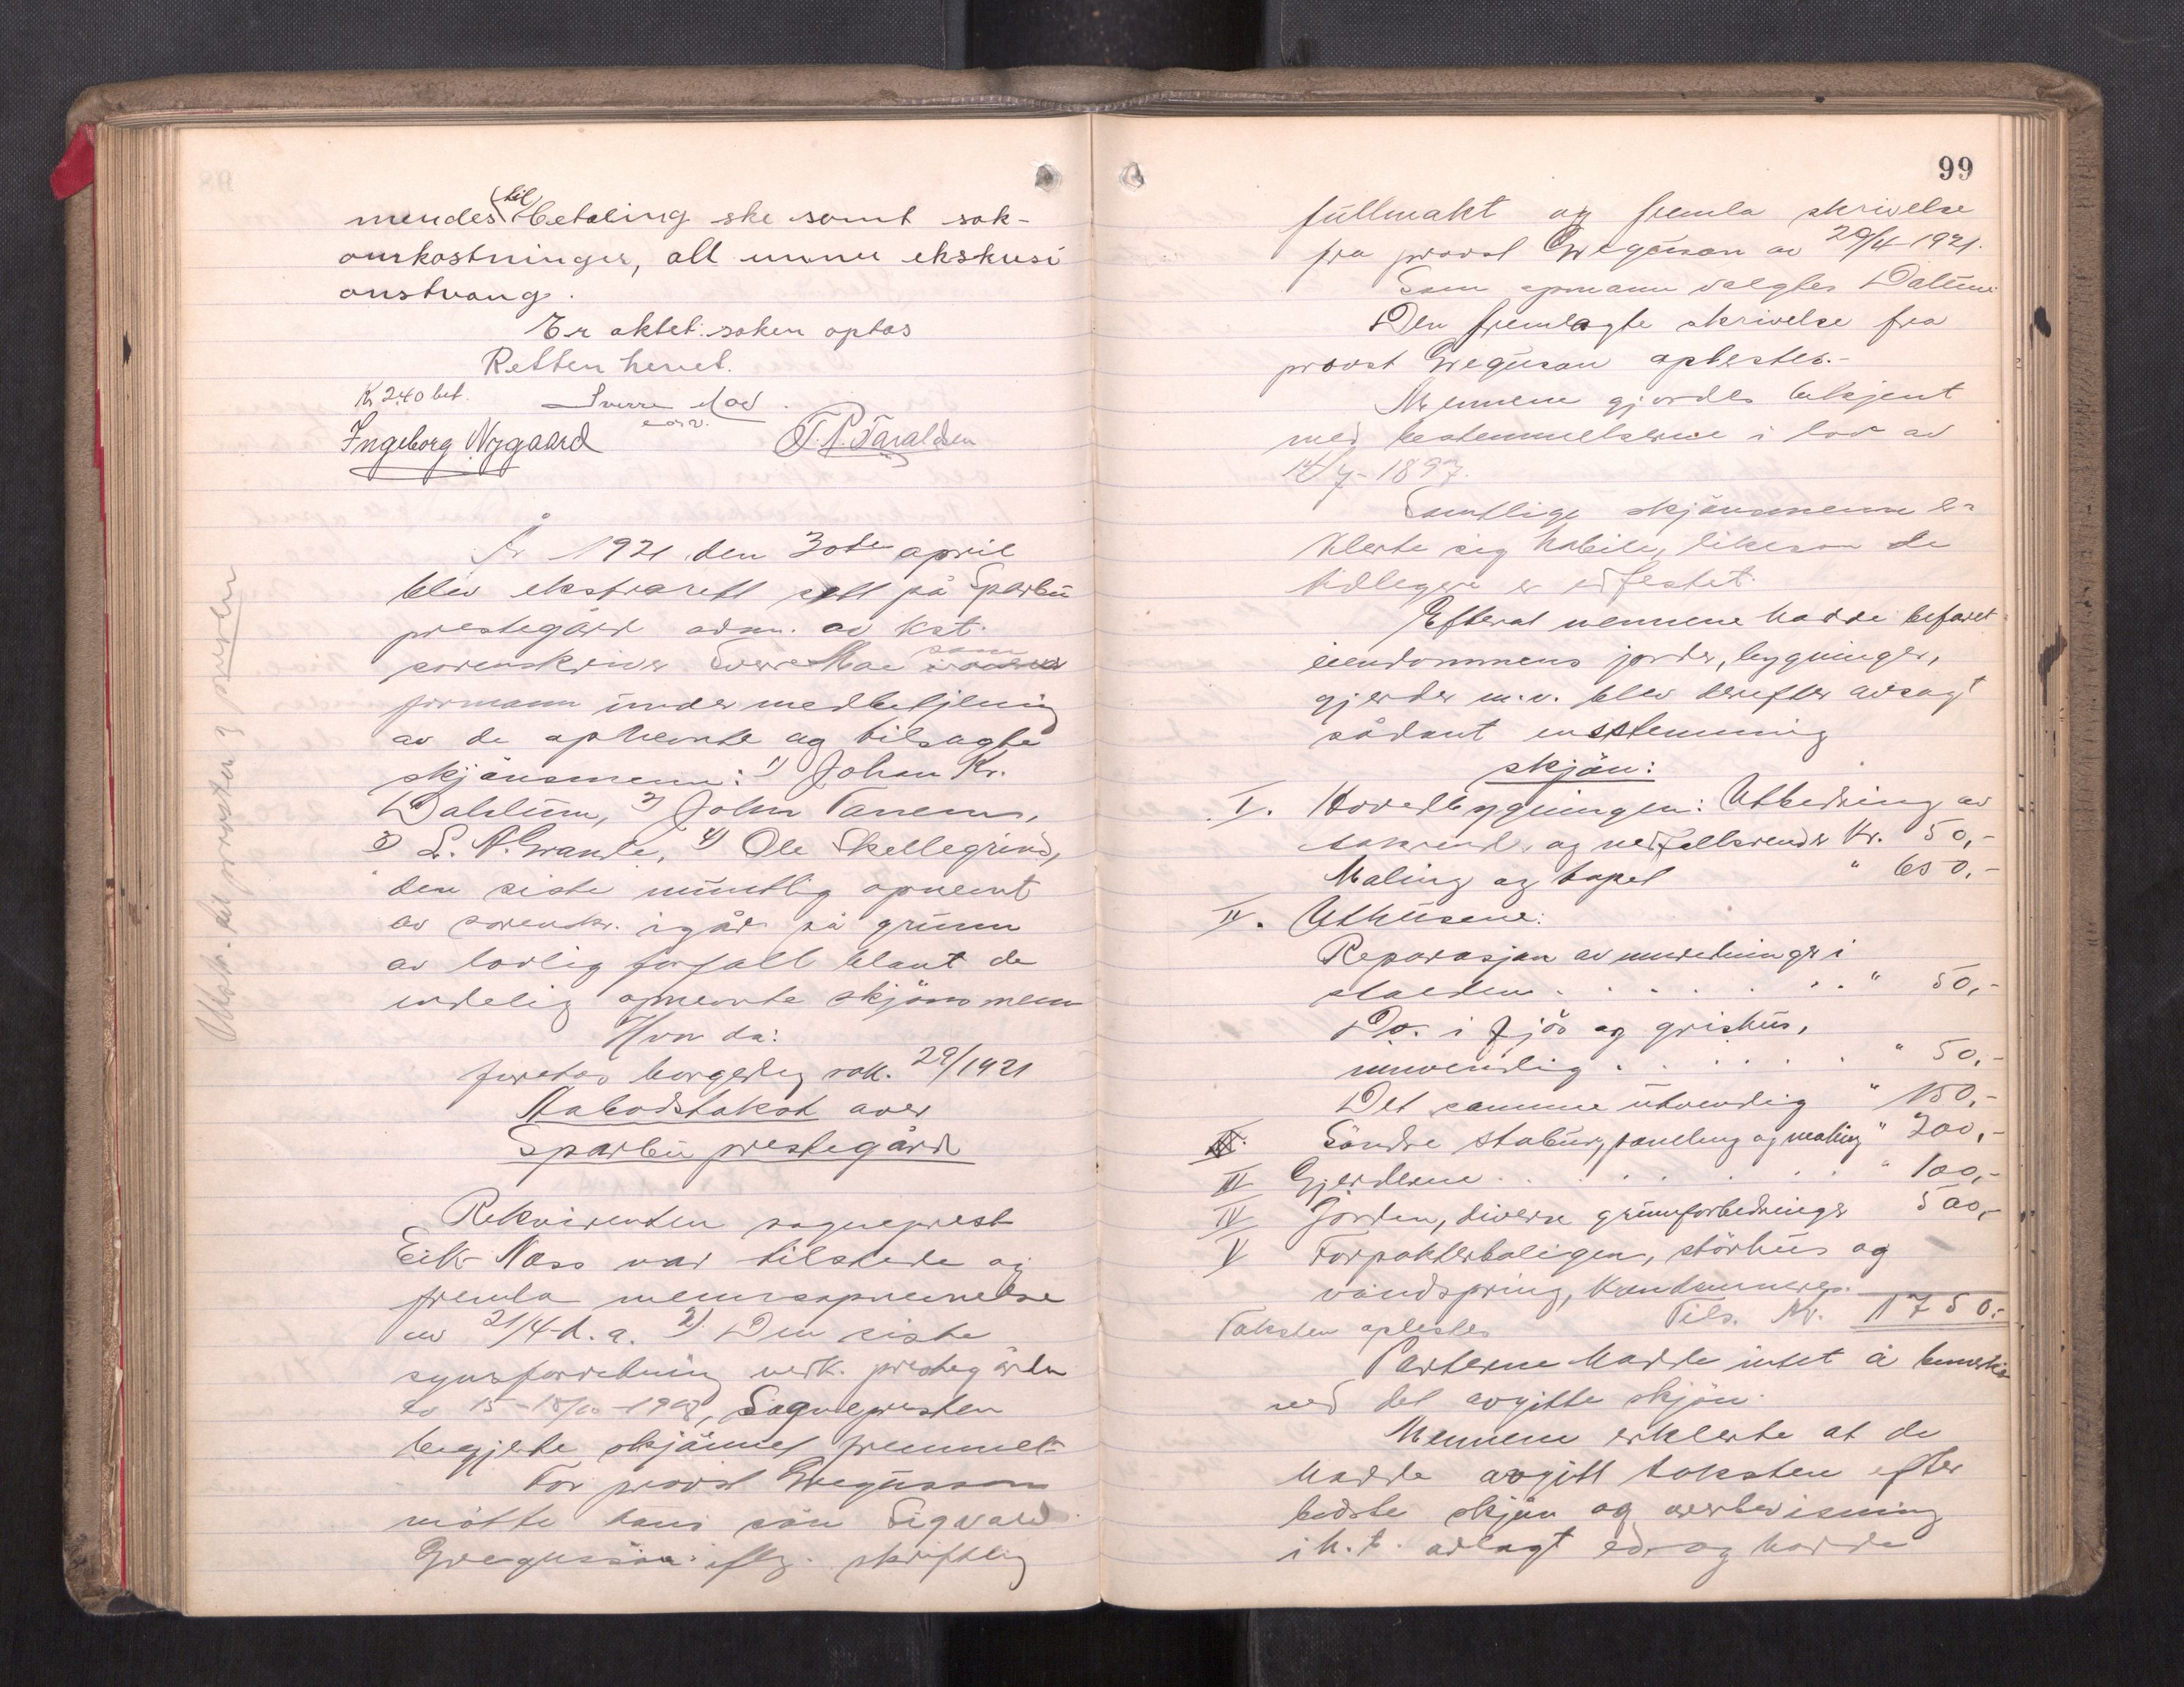 mendes til betaling ske samt sak-
omkostninger, alt under ekskusi
onstvang.
Er aktet: saken optas
Retten hevet.
Kr 2.40 bet. Sverre Moe
Ingeborg Nygaard T. P. Taraldsen
År 1921 den 30de april
blev ekstrarett sett på Sparbu
prestegård adm. av kst.
sorenskriver Sverre Moe som
formann under medbetjening
av de opnevnte og tilsagte
skjönsmenn: 1) Johan Kr.
Dahlum, 2) John Tanem,
3) L. N. Grande, 4) Ole Skellegrind,
den siste muntlig opnevnt
av sorenskr. igår på grunn
av lovlig forfall blant de
endelig opnevnte skjönsmenn
Hvor da:
foretas borgerlig sak. 29/1921
Aabodstakst over
Sparbu prestegård
Rekvirenten sogneprest
Eik-Næss var tilstede og
fremla mennsopnevnelse
av 21/4 d. a. 2) Den siste
synsforretning vedk. prestegården
av 15-18/10-1908, Sognepresten
begjerte skjönnet fremmet
For provst Gregusson
mötte hans sön Sigvald
Gregusson iflg. skriftlig
Utskr. til provsten & presten
99
fullmakt og fremla skrivelse
fra provst Gregusson av 29/4-1921.
Som opmann valgtes Dalum
Den fremlagte skrivelse fra
provst Gregusson oplestes.-
Mennene gjordes bekjent
med bestemmelserne i lov av
14/7-1897.
Samtlige skjönsmenn er-
klerte sig habile, likesom de
tidligere er edfestet.
Efterat mennene hadde befaret
eiendommens jorder, bygninger,
gjerder m.v. blev derefter avsagt
sådant enstemmig
skjön:
I. Hovedbygningen: Utbedring av
takrender og nedfallsrender Kr. 50,-
Maling og tapet " 650,-
II. Uthusene:
Reparasjon av innredninger i
stalden . . . . . . " 50,-
Do. i fjös og grishus,
innvendig . . . . . " 50,-
Det samme utvendig " 150,-
Söndre stabur, panelling og maling " 200,-
III Gjerderne . . . . . . " 100,-
IV Jorden, diverse grunnforbedringer 500,-
V Forpakterboligen, störhus og
vandspring, kondemneres.
Taksten oplestes Tils. Kr. 1750.-
Parterne hadde intet å bemerke
ved det avgitte skjön.
Mennene erklerte at de
hadde avgitt taksten efter
bedste skjön og overbevisning
i h. t. avlagt ed og hadde